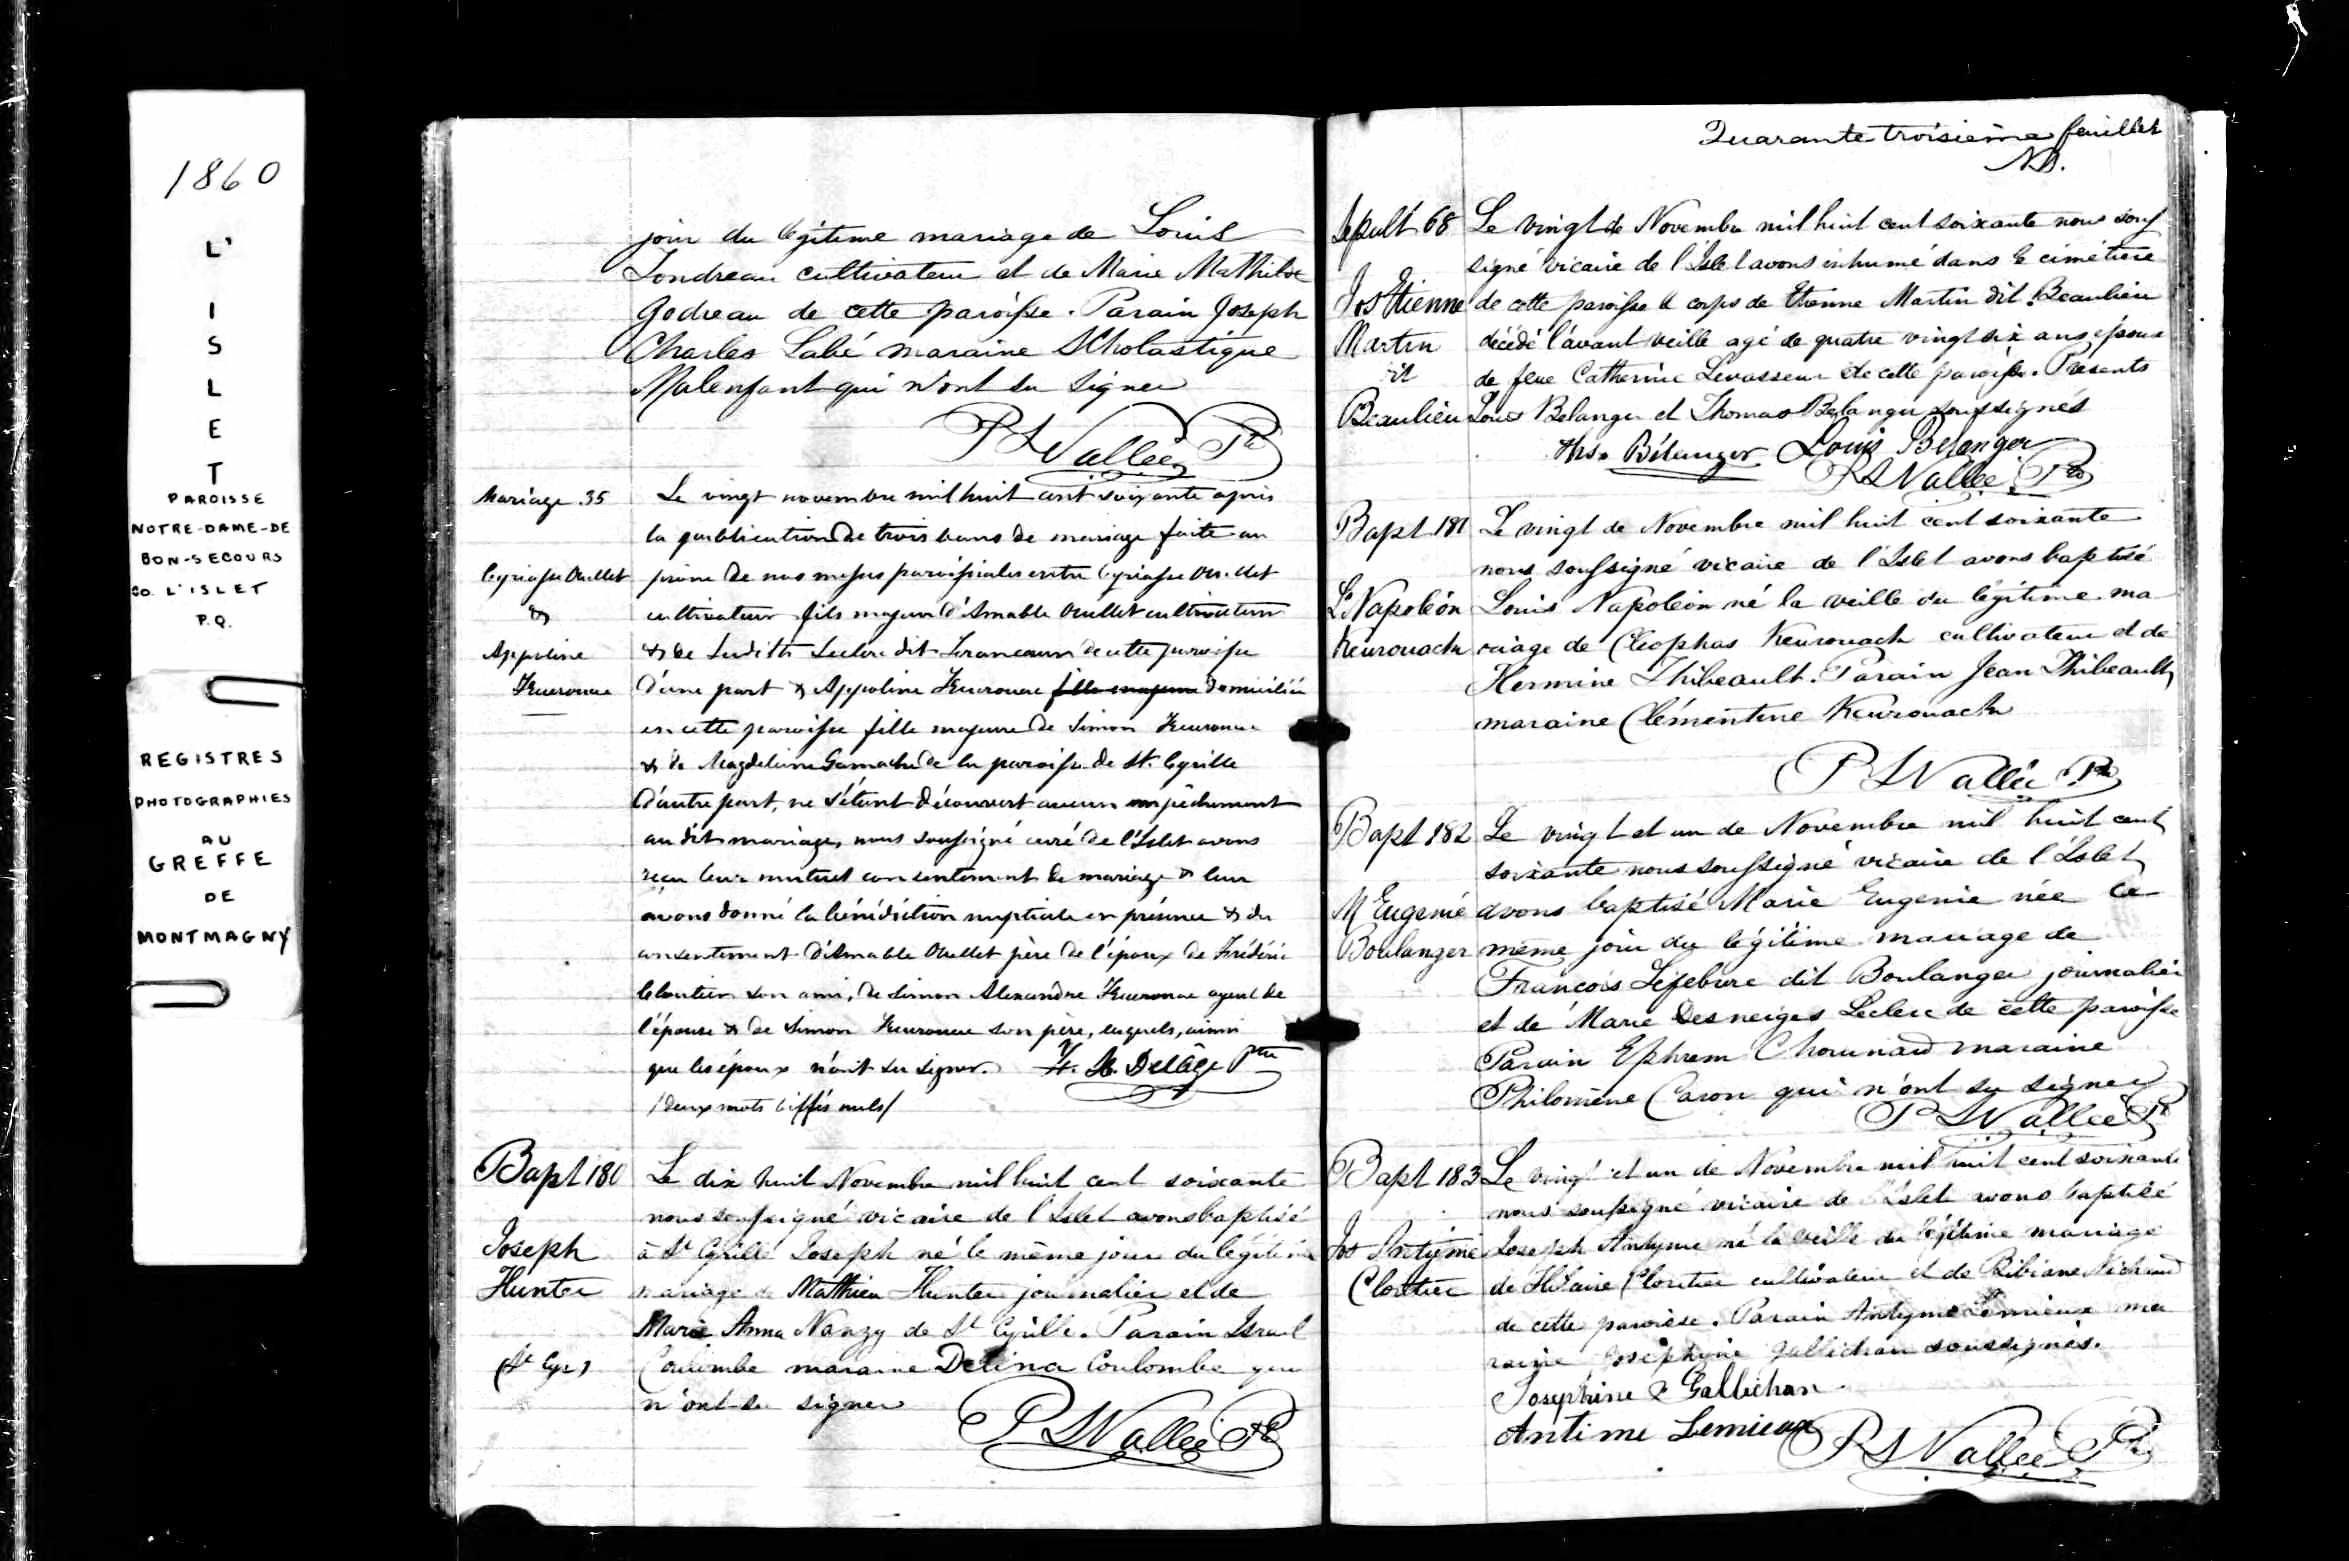 1860
L'
I
S
L
E
T
PAROISSE
NOTRE-DAME-DE
BON-SECOURS
CO. L'ISLET
P.Q.
REGISTRES
PHOTOGRAPHIES
AU
GREFFE
DE
MONTMAGNY
jour du légitime mariage de Louis
Tondreau cultivateur et de Marie Mathilde
Godreau de cette paroisse. Parain Joseph
Charles Labé maraine Scholastique
Malenfant qui n'ont su signer
P S Vallée Ptre
Mariage 35
Cyriasse Ouellet
&
Appoline
Keurouac
Le vingt novembre mil huit cent soixante après
la publication de trois bans de mariage faite au
prône de nos messes paroissiales entre Cyriasse Ouellet
cultivateur fils majeur d'Amable Ouellet cultivateur
& de Judith Leclerc dit Francoeur de cette paroisse
d'une part & Appoline Keurouac fille majeure domiciliée
en cette paroisse fille majeure de Simon Keurouac
& de Magdeleine Gamache de la paroisse de St. Cyrille
d'autre part, ne s'étant découvert aucun empêchement
au dit mariage, nous soussigné curé de l'Islet avons
reçu leur mutuel consentement de mariage & leur
avons donné la bénédiction nuptiale en présence & du
consentement d'Amable Ouellet père de l'époux de Frédéric
Cloutier son ami, de Simon Alexandre Keurouac ayeul de
l'épouse & de Simon Keurouac son père, lesquels, ainsi
que les époux n'ont su signer. F. H. Delâge Ptre
/deux mots biffés nuls/
Bapt 180
Joseph
Hunter
(St Cyr)
Le dix huit Novembre mil huit cent soixante
nous soussigné vicaire de l'Islet avons baptisé
à St Cyrille Joseph né le même jour du légitime
mariage de Mathieu Hunter journalier et de
Marie Anna Nanzy de St Cyrille. Parain Israel
Coulombe maraine Delina Coulombe qui
n'ont su signer
P S Vallée Ptre
Quarante troisième feuillet
Sepult 68
Jos Etienne
Martin
dit
Beaulieu
Le vingt de Novembre mil huit cent soixante nous sous
signé vicaire de l'Islet avons inhumé dans le cimétiere
de cette paroisse le corps de Etienne Martin dit Beaulieu
décédé l'avant veille agé de quatre vingt dix ans epoux
de feue Catherine Levasseur de cette paroisse. Présents
Louis Belanger et Thomas Belanger soussignés
Ths. Bélanger Louis Belanger
P S Vallée Ptre
Bapt 181
Ls Napoléon
Keurouack
Le vingt de Novembre mil huit cent soixante
nous soussigné vicaire de l'Islet avons baptisé
Louis Napoléon né la veille du légitime ma
riage de Cléophas Keurouack cultivateur et de
Hermine Thibeault. Parain Jean Thibeault
maraine Clémentine Keurouack
P S Vallée Ptre
Bapt 182
M Eugenie
Boulanger
Le vingt et un de Novembre mil huit cent
soixante nous soussigné vicaire de l'Islet
avons baptisé Marie Eugenie née le
même jour du légitime mariage de
François Lefebvre dit Boulanger journalier
et de Marie Desneiges Leclerc de cette paroisse
Parain Ephrem Chouinard maraine
Philomène Caron qui n'ont su signer
P S Vallée Ptre
Bapt 183
Jos Antyme
Cloutier
Le vingt et un de Novembre mil huit cent soixante
nous soussigné vicaire de l'Islet avons baptisé
Joseph Antyme né la veille du légitime mariage
de Hilaire Cloutier cultivateur et de Bibiane Michaud
de cette paroisse. Parain Antyme Lemieux ma
raine Josephine Gallichan soussignés.
Josephine Gallichan
Antime Lemieux P S Vallée Ptre